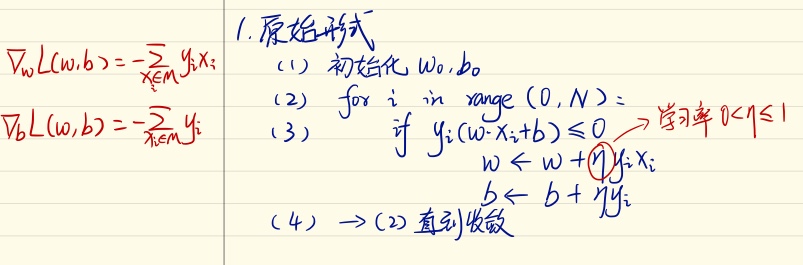 ∇_w L(w,b) = -∑_{x_i∈M} y_i x_i
∇_b L(w,b) = -∑_{x_i∈M} y_i
1. 原始形式
(1) 初始化 w₀, b₀
(2) for i in range (0, N):
(3) if y_i(w·x_i+b) ≤ 0
→ 学习率 0<η≤1
w ← w + η y_i x_i
b ← b + η y_i
(4) → (2) 直到收敛